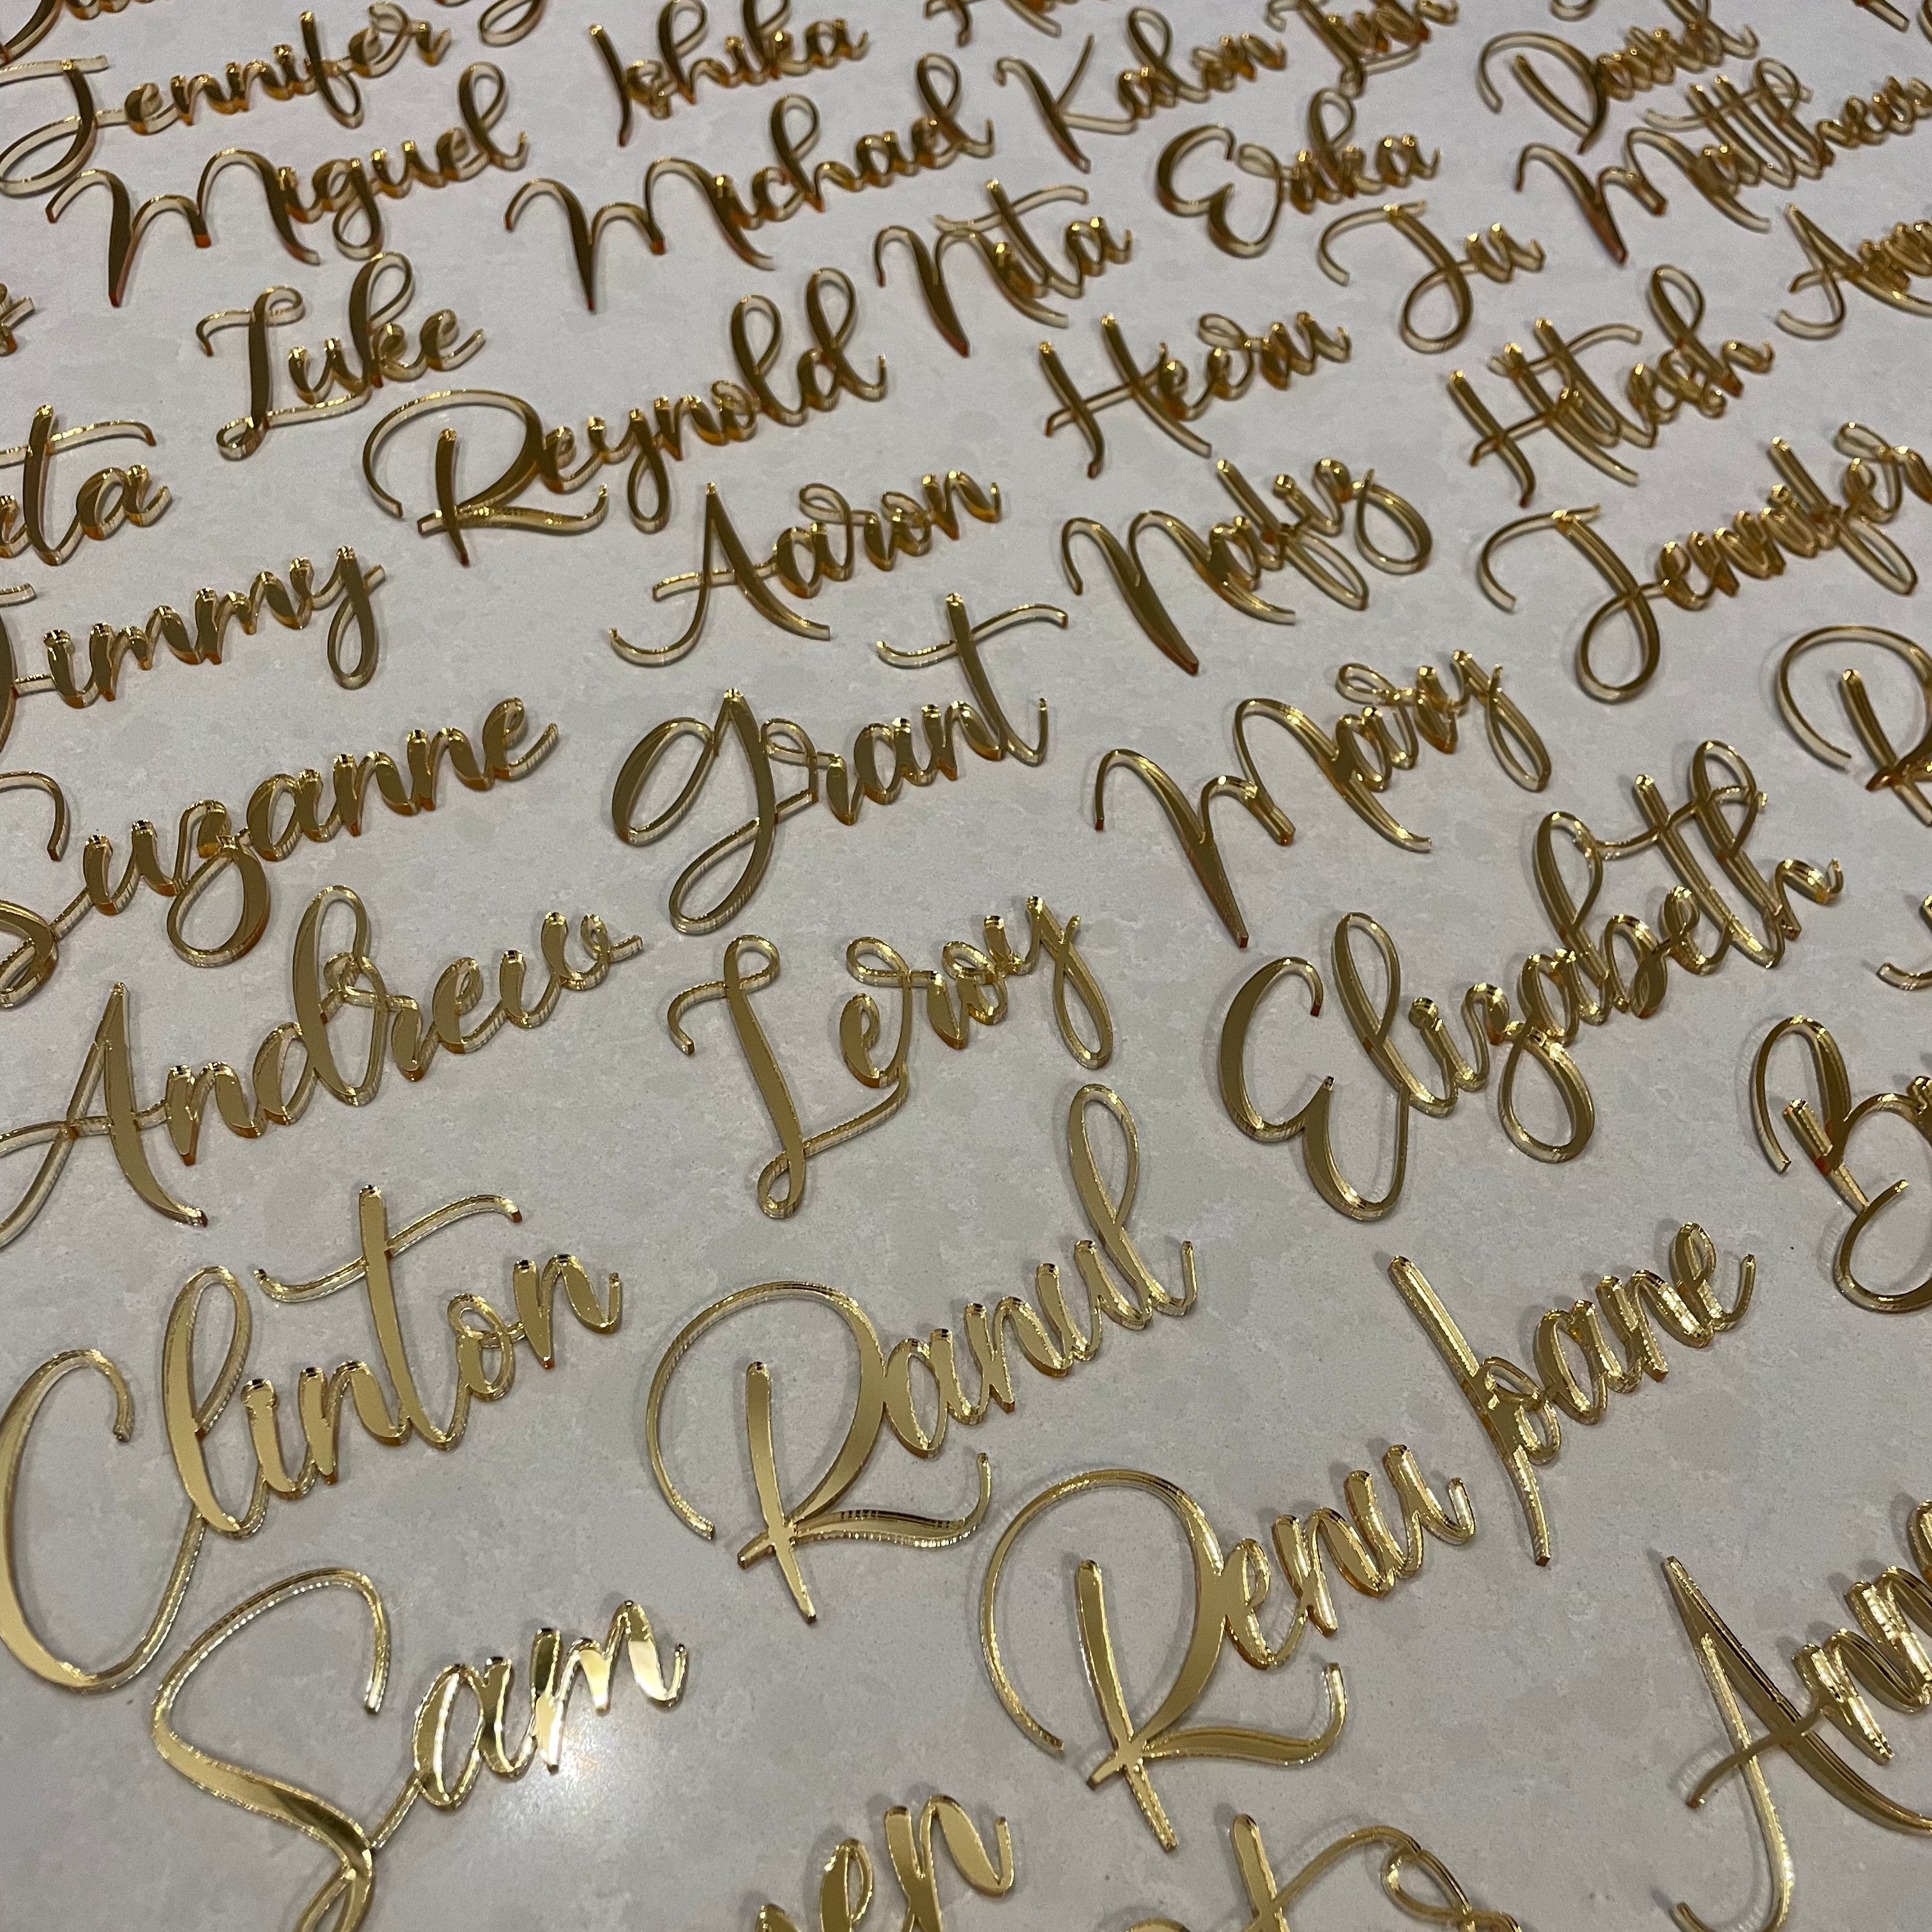 Jennifer
Ishika
Kalon
David
Miguel
Michael
Erika
Matthew
Luke
Nita
Ju
Reynold
Heeru
Hitesh
Aaron
Nafiz
Jennifer
Jimmy
Grant
Mary
Suzanne
Andrew
Leroy
Elizabeth
Clinton
Ranul
Renu bane
Sam